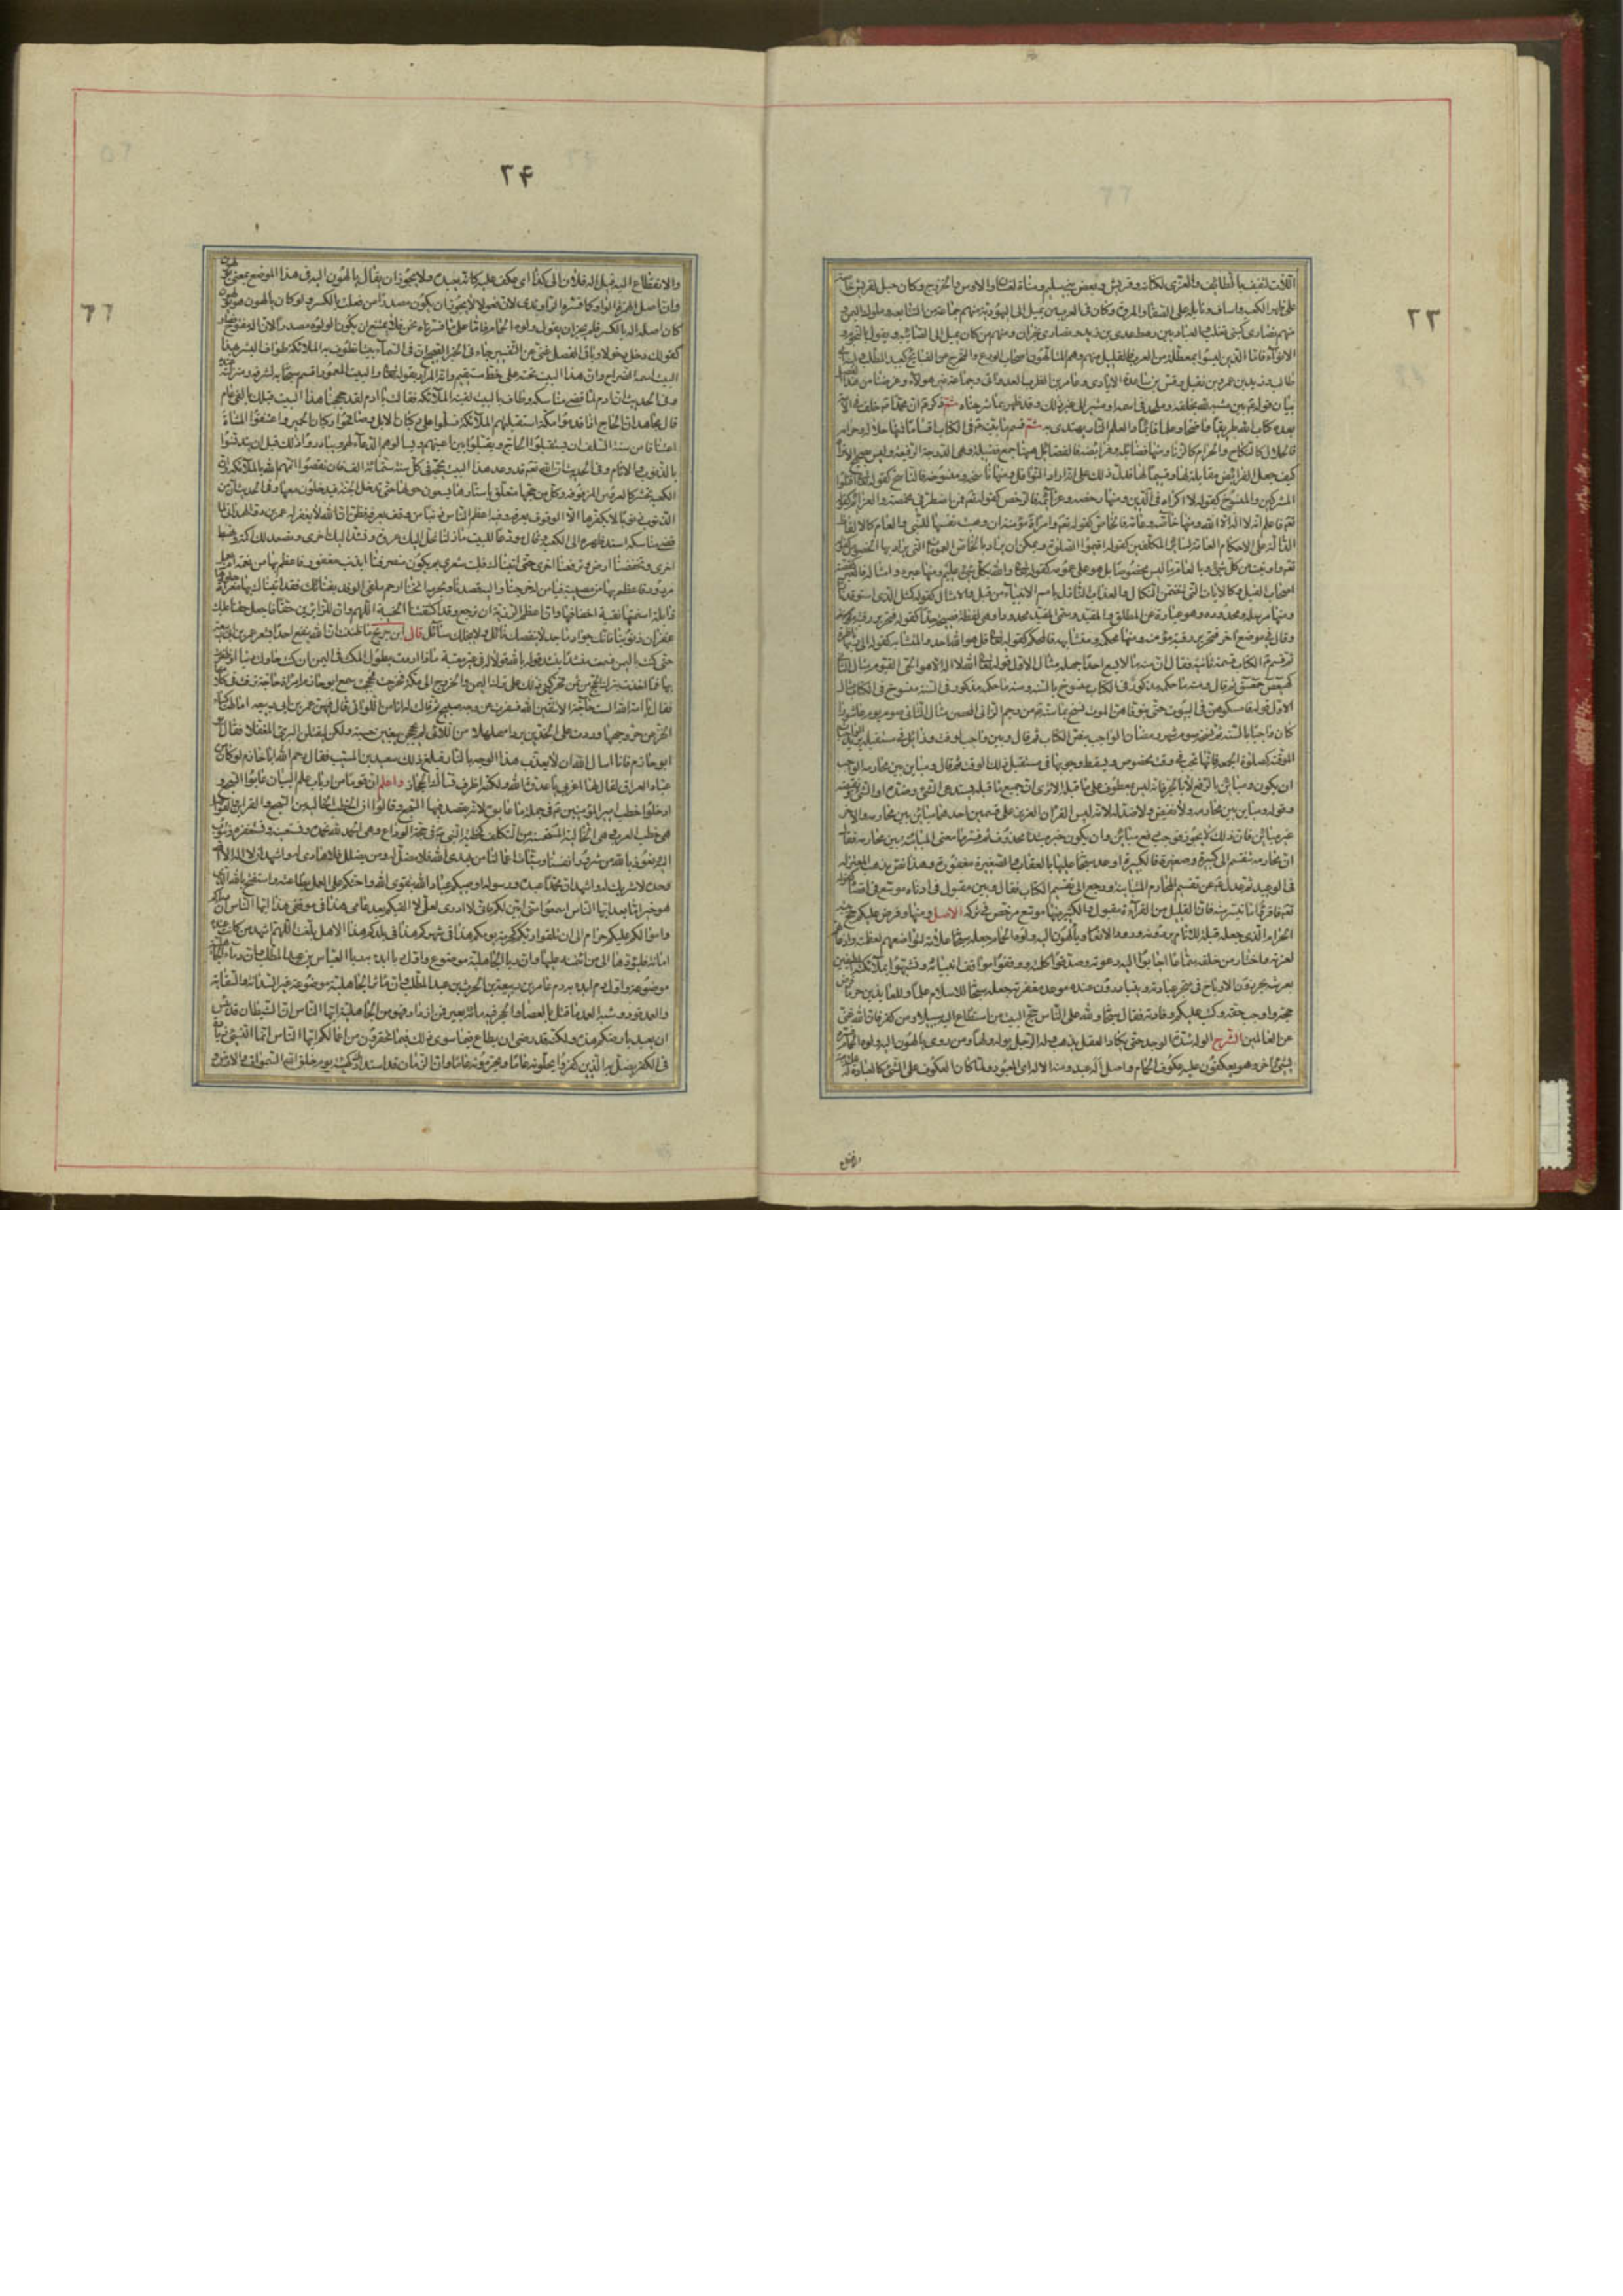 ٢٣
اللات لثقيف بالطائف والعزى لكنانه وقريش وبعض بني سليم ومناة لغسان والاوس والخزرج وكان هبل لقريش خاصة
على ظهر الكعبه واساف ونائله على الصفا والمروة وكان في العرب من يميل الى اليهودية منهم جماعه من التبابعه وملوك اليمن
منهم نصارى كبني تغلب والعباديين رهط عدي بن زيد ونصارى نجران ومنهم من كان يميل الى الصابئه ويقول بالنجوم و
الانواء فاما الذين ليسوا بمعطله من العرب فالقليل منهم وهم المتألهون اصحاب الورع والتحرج عن القبايح كعبد المطلب
طالب وزيد بن عمرو بن نفيل وقس بن ساعدة الايادي وعامر بن الظرب العدواني وجماعة غير هولاء وغرضنا من هذا
بيان قوله بين مشبه لله بخلقه وملحد في اسمه او مشير الى غيره ذلك وقد ظهر بما شرحناه ثم ذكر ان محمدا خلف في الامه
بعده كتاب الله طريقا واضحا وعلما قائما والعلم المنار يهتدى به ثم قسم ما بينه في الكتاب اقساما فمنها حلاله وحرامه
فالحلال كالنكاح والحرام كالزنا ومنها فضائله وفرائضه فالفضائل ههنا جمع فضيله وهي الدرجة الرفيعه
كيف جعل الفرايض مقابله لها وقسيما لها فدل ذلك على انه اراد النوافل ومنها ناسخه ومنسوخه فالناسخ كقوله فاقتلوا
المشركين والمنسوخ كقوله لا اكراه في الدين ومنها رخصه وعزائمه فالرخص كقوله تع فمن اضطر في مخمصة والعزائم كقوله
تع فاعلم انه لا اله الا الله ومنها خاصه وعامه فالخاص كقوله تع وامراة مؤمنة ان وهبت نفسها للنبي والعام كالالفاظ
الدالة على الاحكام العامة لسائر المكلفين كقوله اقيموا الصلوة ويمكن ان يراد بالخاص العمومات التي يراد بها الخصوص كقوله
تع واوتيت من كل شئ وبالعام ما ليس مخصوصا بل هو على عمومه كقوله تع والله بكل شئ عليم ومنها عبره وامثاله فالعبر كقصه
اصحاب الفيل وكالايات التي تتضمن النكال والعذاب النازل بامم الانبياء من قبل والامثال كقوله كمثل الذي استوقد نارا
ومنها مرسله ومحدوده وهو عبارة عن المطلق والمقيد وسمى المقيد محدودا وهي لفظة فصيحه جدا كقوله فتحرير رقبه
وقال في موضع اخر فتحرير رقبة مؤمنه ومنها محكمه ومتشابهه فالمحكم كقوله تع قل هو الله احد والمتشابه كقوله الى ربها ناظرة
ثم قسم الكتاب قسمة ثانيه فقال ان منه ما لا يسع احدا جهله مثال الاول قوله تع الله لا اله الا هو الحي القيوم ومثال الثاني
كهيعص حمعسق ثم قال ومنه ما حكمه مذكور في الكتاب منسوخ بالسنه ومنه ما حكمه مذكور في السنة منسوخ في الكتاب مثال
الاول قوله فامسكوهن في البيوت حتى يتوفاهن الموت نسخ بما سنه من رجم الزاني المحصن مثال الثاني صوم يوم عاشورا
كان واجبا بالسنه ثم نسخه صوم شهر رمضان الواجب بنص الكتاب ثم قال وبين واجب لوقته وزائل في مستقبله يريد الواجبات
الموقته كصلوة الجمعه فانها تجب في وقت مخصوص ويسقط وجوبها في مستقبل ذلك الوقت ثم قال ومباين بين محارمه الواجب
ان يكون ومباين بالرفع لا بالجر فانه ليس بمعطوف على ما قبله الا ترى ان جميع ما قبله يستدعي الشئ وضده او الشئ ونقيضه
وقوله ومباين بين محارمه لا نقيض ولا ضد له لانه ليس القران العزيز على قسمين احدهما مباين بين محارمه والاخر
غير مباين فان ذلك لا يجوز فوجب رفع مباين وان يكون خبر مبتدا محذوف ثم فسر ما معنى المباينه بين محارمه فقال
ان محارمه تنقسم الى كبيرة وصغيرة فالكبيرة اوعد سبحانه عليها بالعقاب والصغيرة مغفورة وهذا نص مذهب المعتزله
في الوعيد ثم عدل عن تقسيم المحارم المتباينه ورجع الى تقسيم الكتاب فقال وبين مقبول في ادناه وموسع في اقصاه كقوله
تع فاقرؤا ما تيسر منه فان القليل من القرآن مقبول والكثير منها موسع مرخص في تركه الاصل ومنها وفرض عليكم حج بيته
الحرام الذي جعله قبلة للانام يردونه ورود الانعام ويألهون اليه ولوه الحمام جعله سبحانه علامة لتواضعهم لعظمته واذعانهم
لعزته واختار من خلقه سماعا اجابوا اليه دعوته وصدقوا كلمته ووقفوا مواقف انبيائه وتشبهوا بملائكته المطيفين
بعرشه يحرزون الارباح في متجر عبادته ويتبادرون عنده موعد مغفرته جعله سبحانه للاسلام علما وللعايذين حرما فرض
حجه واوجب حقه وكتب عليكم وفادته فقال سبحانه ولله على الناس حج البيت من استطاع اليه سبيلا ومن كفر فان الله غني
عن العالمين الشرح الوله شدة الوجد حتى يكاد العقل يذهب وله الرجل يوله ولها ومن روى يألهون اليه ولوه الحمام فسره
بشئ اخر وهو يعكفون عليه عكوف الحمام واصل اله عبد ومنه الاله اي المعبود ولما كان العكوف على الشئ كالعبادة له
والانقطاع
٢٤
والانقطاع اليه قيل اله فلان الى كذا اي عكف عليه كانه يعبده ولا يجوز ان يقال يالهون اليه في هذا الموضع بمعنى يولهون
وان اصل الهمزة الواو كما فسره الراوندي لان فعولا لا يجوز ان يكون مصدرا من فعلت بالكسر ولو كان يالهون هو يولهون
كان اصله اله بالكسر فلم يجز ان يقول ولوه الحمام واما على ما فسرناه نحن فلا يمتنع ان يكون الولوه مصدرا لان اله مفتوح فصار
كقولك دخل دخولا وباقي الفصل غني عن التفسير جاء في الخبر الصحيح ان في السماء بيتا تطوف به الملائكة طواف البشر بهذا
البيت اسمه الضراح وان هذا البيت تحته على خط مستقيم وانه المراد بقوله تع والبيت المعمور اقسم سبحانه به لشرفه ومنزلته عنده
وفي الحديث ان ادم لما قضى مناسكه وطاف بالبيت لقيته الملائكة فقالت يا ادم لقد حججنا هذا البيت قبلك بالفي عام
قال مجاهد ان الحاج اذا قدموا مكة استقبلتهم الملائكة فسلموا على ركبان الابل وصافحوا ركبان الحمير واعتنقوا المشاة
اعتناقا من سنة السلف ان يستقبلوا الحاج ويقبلوا بين اعينهم ويسالوهم الدعاء لهم ويبادروا ذلك قبل ان يتدنسوا
بالذنوب والاثام وفي الحديث ان الله تع قد وعد هذا البيت ان يحجه في كل سنه ستمائة الف فان نقصوا اتمهم الله بالملائكة وان
الكعبة تحشر كالعروس المزفوفه وكل من حجها متعلق باستارها يسعون حولها حتى تدخل الجنة فيدخلون معها وفي الحديث ان من
الذنوب ذنوبا لا يكفرها الا الوقوف بعرفه وفيه اعظم الناس ذنبا من وقف بعرفه فظن ان الله لا يغفر له عمر بن ذر الهمداني لما
قضى مناسكه اسند ظهره الى الكعبة وقال مودعا للبيت ما زلنا نحل اليك عروة ونشد اليك اخرى ونصعد لك اكمة ونهبط
اخرى وتخفضنا ارض وترفعنا اخرى حتى اتيناك فليت شعري بم يكون منصرفنا ابذنب مغفور فاعظم بها من نعمة ام بعمل
مردود فاعظم بها من مصيبة فيا من له خرجنا واليه قصدنا وبحرمه انخنا ارحم ملقى الوفد بفنائك فقد اتيناك بها معراة جلودها
ذابلة اسنمتها نقبة اخفافها وان اعظم الرزية ان نرجع وقد اكتنفتنا الخيبة اللهم وان للزائرين حقا فاجعل حقنا عليك
غفران ذنوبنا فانك جواد ماجد لا ينقصك نائل ولا يبخلك سائل قال ابن جريج ما ظننت ان الله ينفع احدا بشعر عمر بن ابي ربيعه
حتى كنت باليمن فسمعت منشدا ينشد قوله بالله قولا له في غير معتبة ماذا اردت بطول المكث في اليمن ان كنت حاولت دنيا او ظفرت
بها فما اخذت بترك الحج من ثمن فحركني ذلك على ترك اليمن والخروج الى مكة فخرجت فحججت سمع ابو حازم امراة حاجة ترفث في كلامها
فقال يا امة الله الست حاجة الا تتقين الله فسفرت عن وجه صبيح ثم قالت له انا من اللواتي قال فيهن عمر بن ابي ربيعه اماطت كساء
الخز عن حر وجهها وردت على الخدين بردا مهلهلا من اللائي لم يحججن يبغين حسبة ولكن ليقتلن البرئ المغفلا فقال
ابو حازم فانا اسال الله ان لا يعذب هذا الوجه بالنار فبلغ ذلك سعيد بن المسيب فقال رحم الله ابا حازم لو كان من
عباد العراق لقال لها اعزبي يا عدوة الله ولكنه ظرف نساك الحجاز واعلم ان قوما من ارباب علم البيان عابوا السجع و
ادخلوا خطب امير المؤمنين في جملة ما عابوه لانه يقصد فيها السجع وقالوا ان الخطب الخاليه من السجع والقراين والفواصل
هي خطب العرب وهي المستحسنة الخالية من التكلف كخطبة النبي في حجة الوداع وهي الحمد لله نحمده ونستعينه ونستغفره ونتوب
اليه ونعوذ بالله من شرور انفسنا وسيئات اعمالنا من يهدي الله فلا مضل له ومن يضلل فلا هادي له واشهد ان لا اله الا الله
وحده لا شريك له واشهد ان محمدا عبده ورسوله اوصيكم عباد الله بتقوى الله واحثكم على العمل بطاعته واستفتح بالله الذي
هو خير اما بعد ايها الناس اسمعوا مني ابين لكم فاني لا ادري لعلي لا القاكم بعد عامي هذا في موقفي هذا ايها الناس ان دماءكم
واموالكم عليكم حرام الى ان تلقوا ربكم كحرمة يومكم هذا في شهركم هذا في بلدكم هذا الا هل بلغت اللهم اشهد من كانت عنده
امانة فليؤدها الى من ائتمنه عليها وان ربا الجاهلية موضوع واول ربا ابدء به ربا العباس بن عبد المطلب وان دماء الجاهلية
موضوعه واول دم ابدء به دم عامر بن ربيعة بن الحرث بن عبد المطلب وان مآثر الجاهلية موضوعة غير السدانة والسقاية
والعمد قود وشبه العمد ما قتل بالعصا والحجر فيه مائة بعير فمن ازداد فهو من الجاهلية ايها الناس ان الشيطان قد يئس
ان يعبد بارضكم هذه ولكنه قد رضي ان يطاع فيما سوى ذلك فيما تحتقرون من اعمالكم ايها الناس انما النسئ زيادة
في الكفر يضل به الذين كفروا يحلونه عاما ويحرمونه عاما وان الزمان قد استدار كهيئته يوم خلق الله السموات والارض